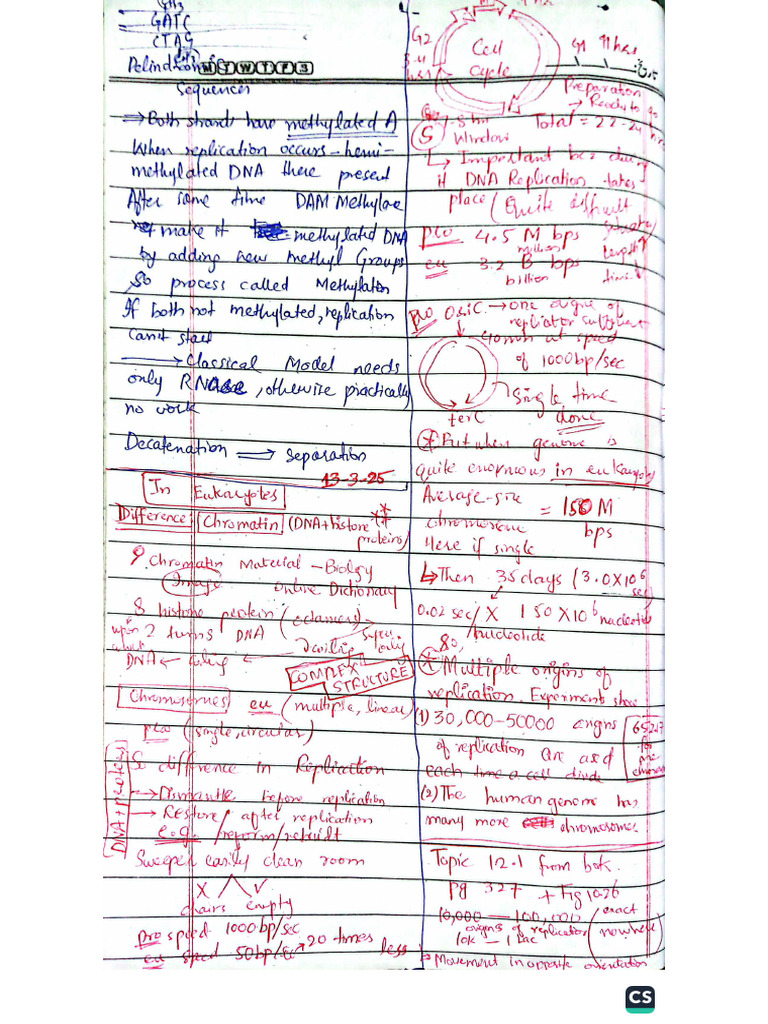 CH3
GATC
CTAG
Palindromic
M T W T F S
Sequences
⇒ Both strands have methylated A
When replication occurs - hemi-
methylated DNA there present
After some time DAM Methylase
make it methylated DNA
by adding new methyl Groups
So process called Methylation
If both not methylated, replication
Can't start
→ Classical Model needs
only RNAse, otherwise practically
no work
Decatenation ⇒ separation
13-3-25
In Eukaryotes
Difference: Chromatin (DNA + histone
proteins)
Chromatin Material - Biology
Image online Dictionary
8 histone protein (octamers)
upon 2 turns DNA
DNA ← coiling ←
COMPLEX
STRUCTURE
Chromosomes eu (multiple, linear)
pro (single, circular)
So difference in Replication
DNA + protein
→ Dismantle before replication
→ Restore / after replication
e.g. / reform / rebuilt
Sweeper easily clean room
X V
chairs empty
pro speed 1000 bp/sec
eu speed 50 bp/sec → 20 times less
G2
Cell
Cycle
G1 9 hrs
Preparation
→ Ready to go
S
Window
Total = 22-24 hrs
↳ Important bcz during
it DNA Replication takes
place (Quite difficult
pro 4.5 M bps
million
length↑
eu 3.2 B bps
billion
time↑
pro OriC → one origin of
replication sufficient
40 min at speed
of 1000 bp/sec
Single time
done
terC
* But when genome is
quite enormous in eukaryotes
Average size
chromosome = 150 M
bps
Here if single
↳ Then 35 days (3.0×10⁶
sec)
0.02 sec/ X 150×10⁶ nucleotides
nucleotide
So,
* Multiple origins of
replication. Experiments show
(1) 30,000-50000 origns
of replication are used
each time a cell divide
(2) The human genome has
many more chromosomes
Topic 12.1 from book.
Pg 327 + Fig 10.26
10,000 — 100,000 / exact
origins of replication (nowhere)
10k —
→ Movement in opposite orientation
CS